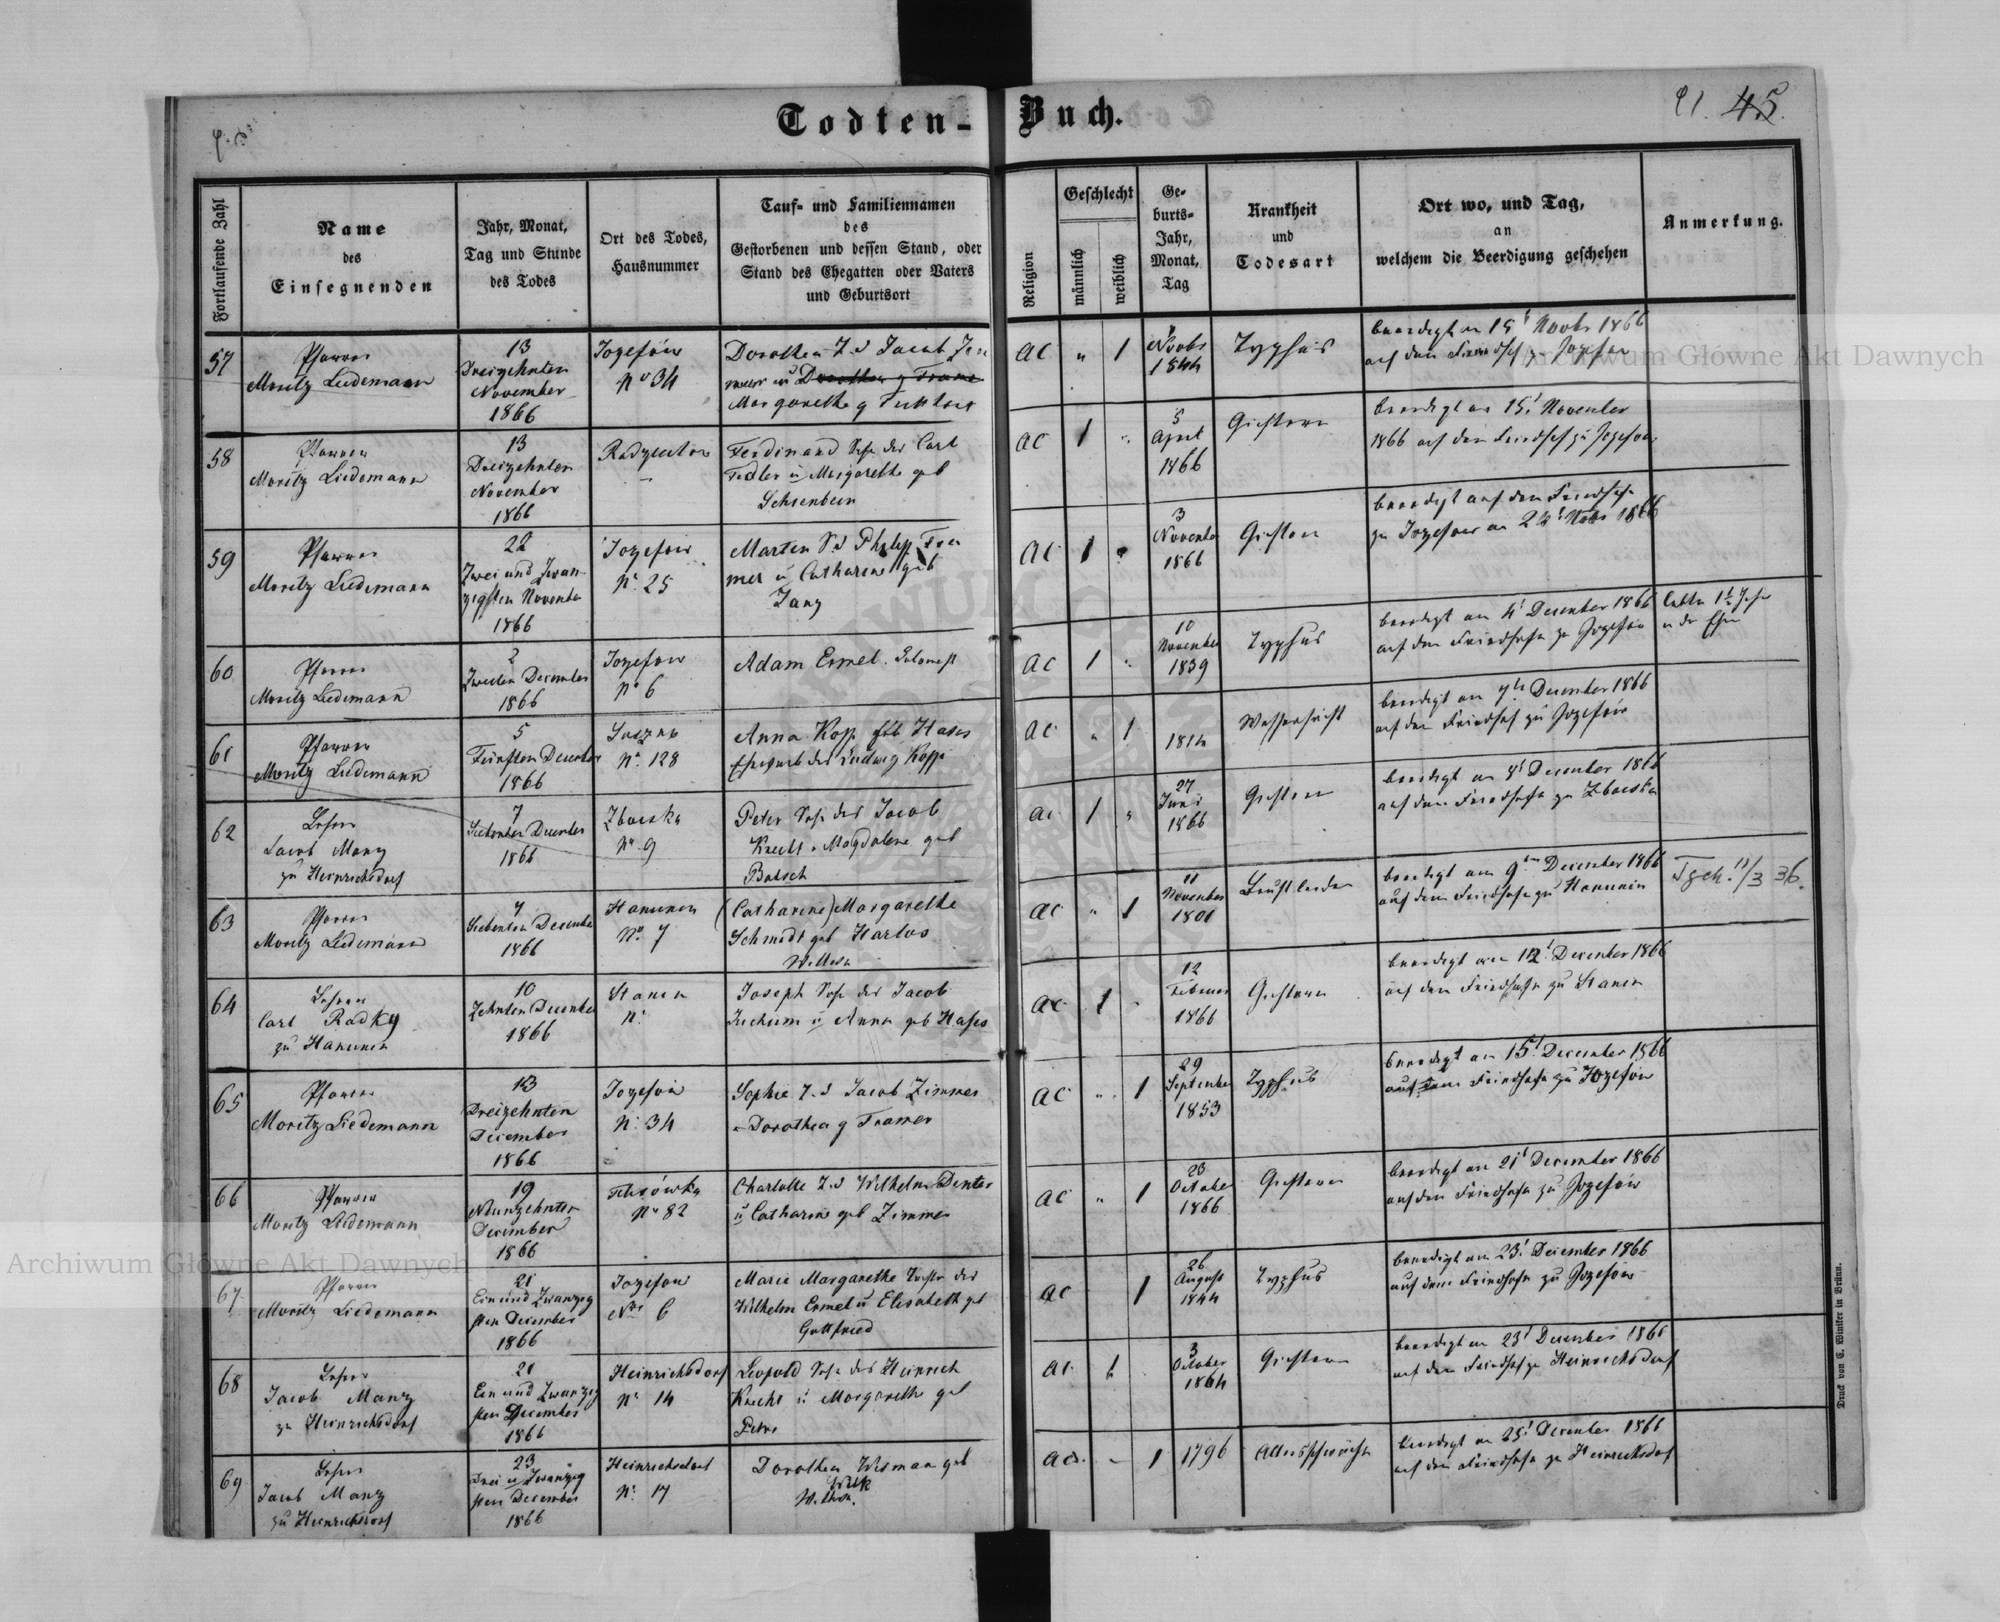 Todten-Buch.
91. 45.
Fortlaufende Zahl
Name
des
Einsegnenden
Jahr, Monat,
Tag und Stunde
des Todes
Ort des Todes,
Hausnummer
Tauf- und Familiennamen
des
Gestorbenen und dessen Stand, oder
Stand des Ehegatten oder Vaters
und Geburtsort
Religion
Geschlecht
männlich
weiblich
Ge-
burts-
Jahr,
Monat,
Tag
Krankheit
und
Todesart
Ort wo, und Tag,
an
welchem die Beerdigung geschehen
Anmerkung.
57
Pfarrer
Moritz Liedemann
13
Dreizehnten
November
1866
Jozefów
No 34
Dorothea T. d Jacob
Margarethe g
AC " 1
Novbr
1844
Typhus
beerdigt am 15t Novbr 1866
auf dem Friedhof zu Jozefow
58
Pfarrer
Moritz Liedemann
13
Dreizehnten
November
1866
Ferdinand Sohn des Carl
Fidler u Margarethe geb
AC 1 "
5
April
1866
beerdigt am 15t November
1866 auf dem Friedhof zu Jozefow
59
Pfarrer
Moritz Liedemann
22
Zwei und Zwan-
zigsten November
1866
Jozefow
No 25
Marten S. d Philipp Tra
mer u Catharine geb
Jany
AC 1
3
November
1866
beerdigt auf dem Friedhofe
zu Jozefow am 24t Nobr 1866
60
Pfarrer
Moritz Liedemann
2
Zweiten December
1866
Jozefow
No 6
Adam Ermel.
AC 1 "
10
November
1839
Typhus
beerdigt am 4t December 1866
auf dem Friedhofe zu Jozefów
lebte 1½ Jahr
in der Ehe
61
Pfarrer
Moritz Liedemann
5
Fünften December
1866
No 128
Anna Kopp geb Haas
Eheweib des Ludwig Kopp
AC " 1
1814
Wassersucht
beerdigt am 7ten December 1866
auf dem Friedhof zu Jozefów
62
Lehrer
Jacob Manz
zu Heinrichsdorf
7
Siebenten December
1866
No 9
Peter Sohn des Jacob
Knecht u Magdalena geb
Batsch
AC 1 "
27
Juni
1866
beerdigt am 8t December 1866
auf dem Friedhofe zu
63
Pfarrer
Moritz Liedemann
7
Siebenten December
1866
Hanunin
No 7
(Catharine) Margarethe
Schmidt geb Harlos
Wittwe
AC " 1
11
November
1801
Brustleiden
beerdigt am 9ten December 1866
auf dem Friedhofe zu Hanunin
64
Lehrer
Carl Radky
zu Hanunin
10
Zehnten December
1866
Stanin
No
Joseph Sohn des Jacob
u Anna geb
AC 1
12
Februar
1866
beerdigt am 12t December 1866
auf dem Friedhofe zu Stanin
65
Pfarrer
Moritz Liedemann
13
Dreizehnten
December
1866
Jozefów
No 34
Sophie T. d Jacob Zimmer
u Dorothea g Tramer
AC " 1
29
September
1853
Typhus
beerdigt am 15t December 1866
auf dem Friedhofe zu Jozefow
66
Pfarrer
Moritz Liedemann
19
Neunzehnten
December
1866
No 82
Charlotte T. d Wilhelm Denter
u Catharine geb Zimmer
AC " 1
23
October
1866
beerdigt am 21t December 1866
auf dem Friedhofe zu Jozefów
67
Pfarrer
Moritz Liedemann
21
Ein und Zwanzig
sten December
1866
Jozefow
Nro 6
Marie Margarethe Tochter des
Wilhelm Ermel u Elisabeth geb
Gottfried
AC 1
26
August
1844
Typhus
beerdigt am 23t December 1866
auf dem Friedhofe zu Jozefów
68
Lehrer
Jacob Manz
zu Heinrichsdorf
21
Ein und Zwanzig
sten December
1866
Heinrichsdorf
No 14
Leopold Sohn des Heinrich
Knecht u Margarethe geb
AC 1
3
October
1864
beerdigt am 23t December 1866
auf dem Friedhof zu Heinrichsdorf
69
Lehrer
Jacob Manz
zu Heinrichsdorf
23
Drei u Zwanzig
sten December
1866
Heinrichsdorf
No 17
Dorothea Wisman geb
AC. 1
1796
Altersschwäche
beerdigt am 25t December 1866
auf dem Friedhofe zu Heinrichsdorf
Druck von C. Winiker in Brünn.
Archiwum Główne Akt Dawnych
Archiwum Główne Akt Dawnych